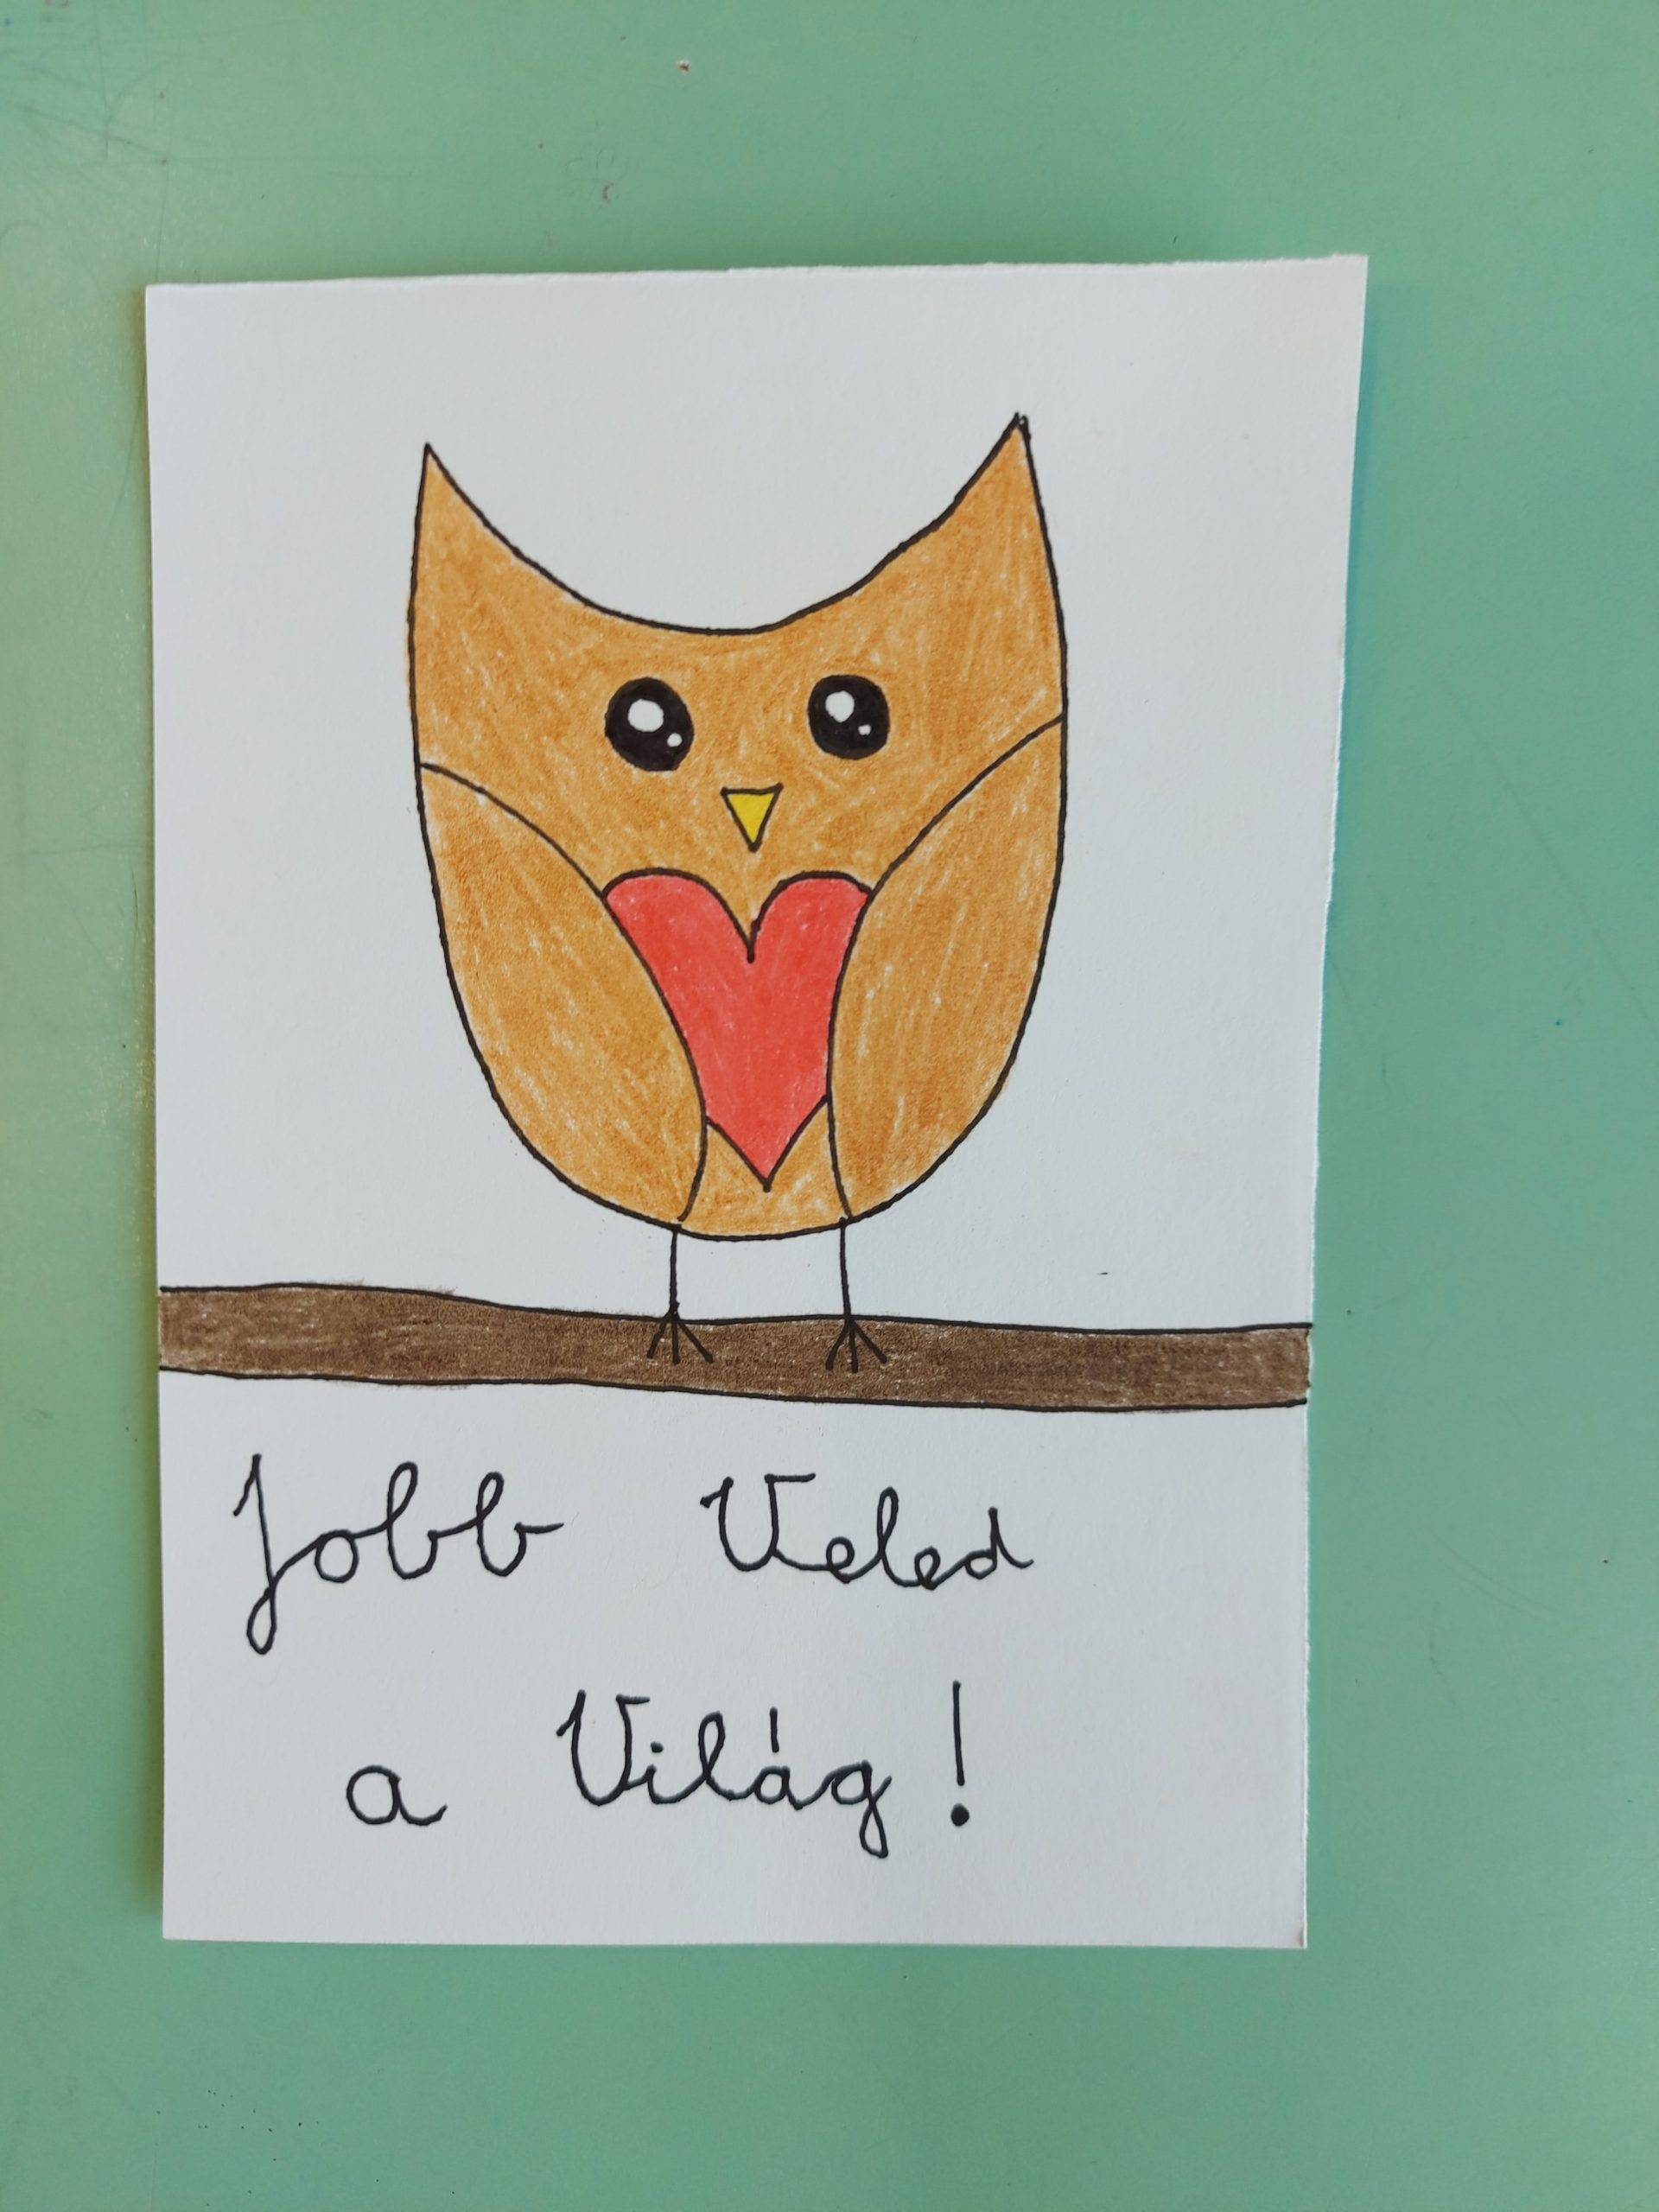 Jobb Veled
a Világ!